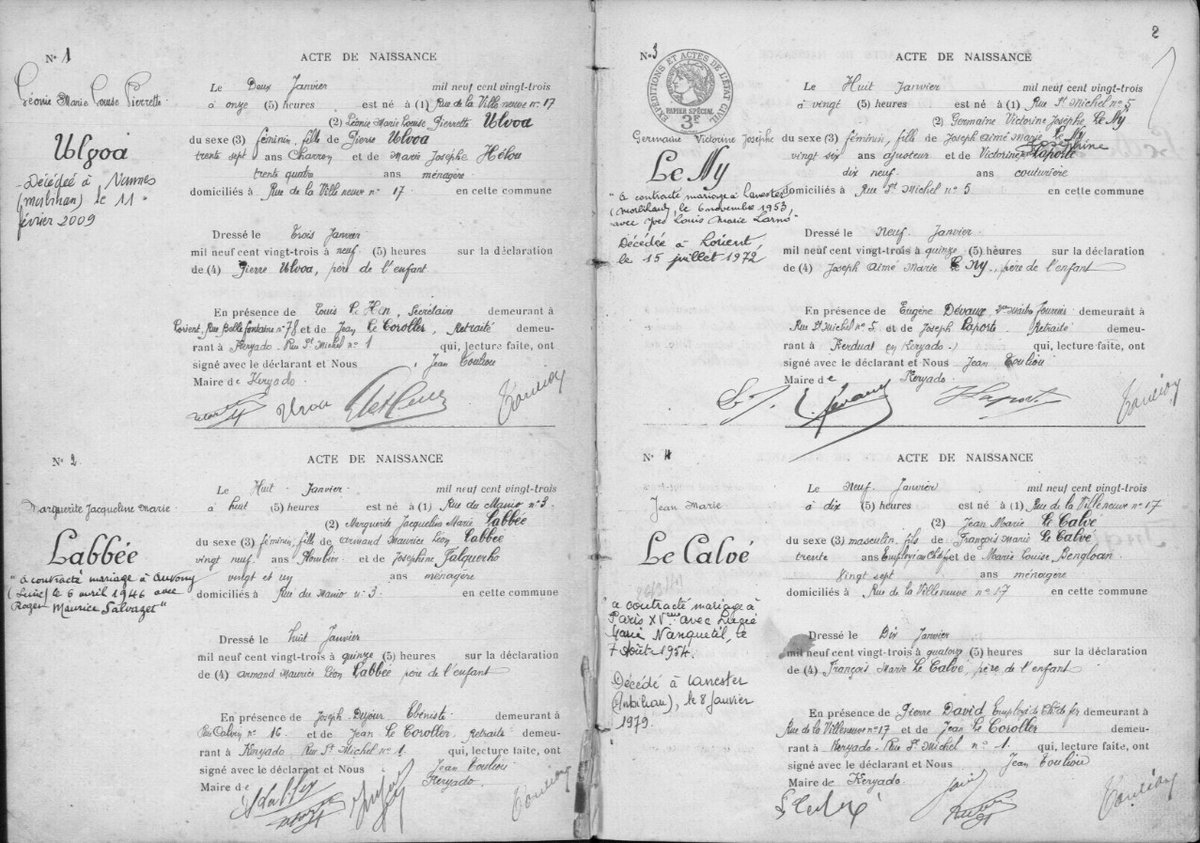 N° 1
ACTE DE NAISSANCE
Léonie Marie Louise Pierrette
Ulvoa
Décédée à Vannes
(Morbihan) le 11
février 2009
Le Deux Janvier mil neuf cent vingt-trois
à onze (5) heures est né à (1) Rue de la Ville neuve n° 17
(2) Léonie Marie Louise Pierrette Ulvoa
du sexe (3) féminin, fille de Pierre Ulvoa
trente sept ans Charron et de Marie Josephe Hélou
trente quatre ans ménagère
domiciliés à Rue de la Ville neuve n° 17 en cette commune
Dressé le Trois Janvier
mil neuf cent vingt-trois à neuf (5) heures sur la déclaration
de (4) Pierre Ulvoa, père de l'enfant
En présence de Louis Le Hen, Secrétaire demeurant à
Lorient, Rue Belle fontaine n° 78 et de Jean Le Coroller, Retraité demeu-
rant à Keryado. Rue St Michel n° 1 qui, lecture faite, ont
signé avec le déclarant et Nous Jean Couliou
Maire de Keryado.
Ulvoa
N° 2
ACTE DE NAISSANCE
Marguerite Jacqueline Marie
Labbée
"a contracté mariage à
le 6 avril 1946 avec
Roger Maurice Salvazet"
Le Huit Janvier mil neuf cent vingt-trois
à huit (5) heures est né à (1) Rue du Manio n° 3
(2) Marguerite Jacqueline Marie Labbée
du sexe (3) féminin, fille de Armand Maurice Léon Labbée
vingt neuf ans Plombier et de Josephine Jalquerho
vingt et un ans ménagère
domiciliés à Rue du Manio n° 3 en cette commune
Dressé le huit Janvier
mil neuf cent vingt-trois à quinze (5) heures sur la déclaration
de (4) Armand Maurice Léon Labbée père de l'enfant
En présence de Joseph Dujour Ebéniste demeurant à
Rue Calvin n° 16 et de Jean Le Coroller Retraité demeu-
rant à Keryado Rue St Michel n° 1. qui, lecture faite, ont
signé avec le déclarant et Nous Jean Couliou
Maire de Keryado
2
N° 3
ACTE DE NAISSANCE
EXPÉDITIONS ET ACTES DE L'ÉTAT CIVIL
PAPIER SPÉCIAL
3F
Germaine Victorine Josephe
Le Ny
"a contracté mariage à Lanester
(Morbihan), le 6 novembre 1953
avec Yves Louis Marie Larno"
Décédée à Lorient
le 15 juillet 1972
Le Huit Janvier mil neuf cent vingt-trois
à vingt (5) heures est né à (1) Rue St Michel n° 5
(2) Germaine Victorine Josephe Le Ny
du sexe (3) féminin, fille de Joseph Aimé Marie Le Ny
Joséphine
vingt six ans ajusteur et de Victorine Laporte
dix neuf ans couturière
domiciliés à Rue St Michel n° 5 en cette commune
Dressé le Neuf Janvier
mil neuf cent vingt-trois à quinze (5) heures sur la déclaration
de (4) Joseph Aimé Marie Le Ny, père de l'enfant
En présence de Eugène Dévaux, demeurant à
Rue St Michel n° 5 et de Joseph Laporte Retraité demeu-
rant à Kerdual en Keryado qui, lecture faite, ont
signé avec le déclarant et Nous Jean Couliou
Maire de Keryado.
Laporte
N° 4
ACTE DE NAISSANCE
Jean Marie
Le Calvé
"a contracté mariage à
Paris XVeme avec Lucie
Marie Nanquetil, le
7 Août 1954.
Décédé à Lanester
(Morbihan), le 8 Janvier
1979.
Le Neuf Janvier mil neuf cent vingt-trois
à dix (5) heures est né à (1) Rue de la Villeneuve n° 17
(2) Jean Marie Le Calvé
du sexe (3) masculin, fils de François Marie Le Calvé
trente ans Employé au Ch et de Marie Louise Bengloan
vingt sept ans ménagère
domiciliés à Rue de la Villeneuve n° 17 en cette commune
Dressé le Dix Janvier
mil neuf cent vingt-trois à quatorze (5) heures sur la déclaration
de (4) François Marie Le Calvé, père de l'enfant
En présence de Pierre David Employé de Ch. de fer demeurant à
Rue de la Villeneuve n° 17 et de Jean Le Coroller demeu-
rant à Keryado. Rue St Michel n° 1. qui, lecture faite, ont
signé avec le déclarant et Nous Jean Couliou
Maire de Keryado.